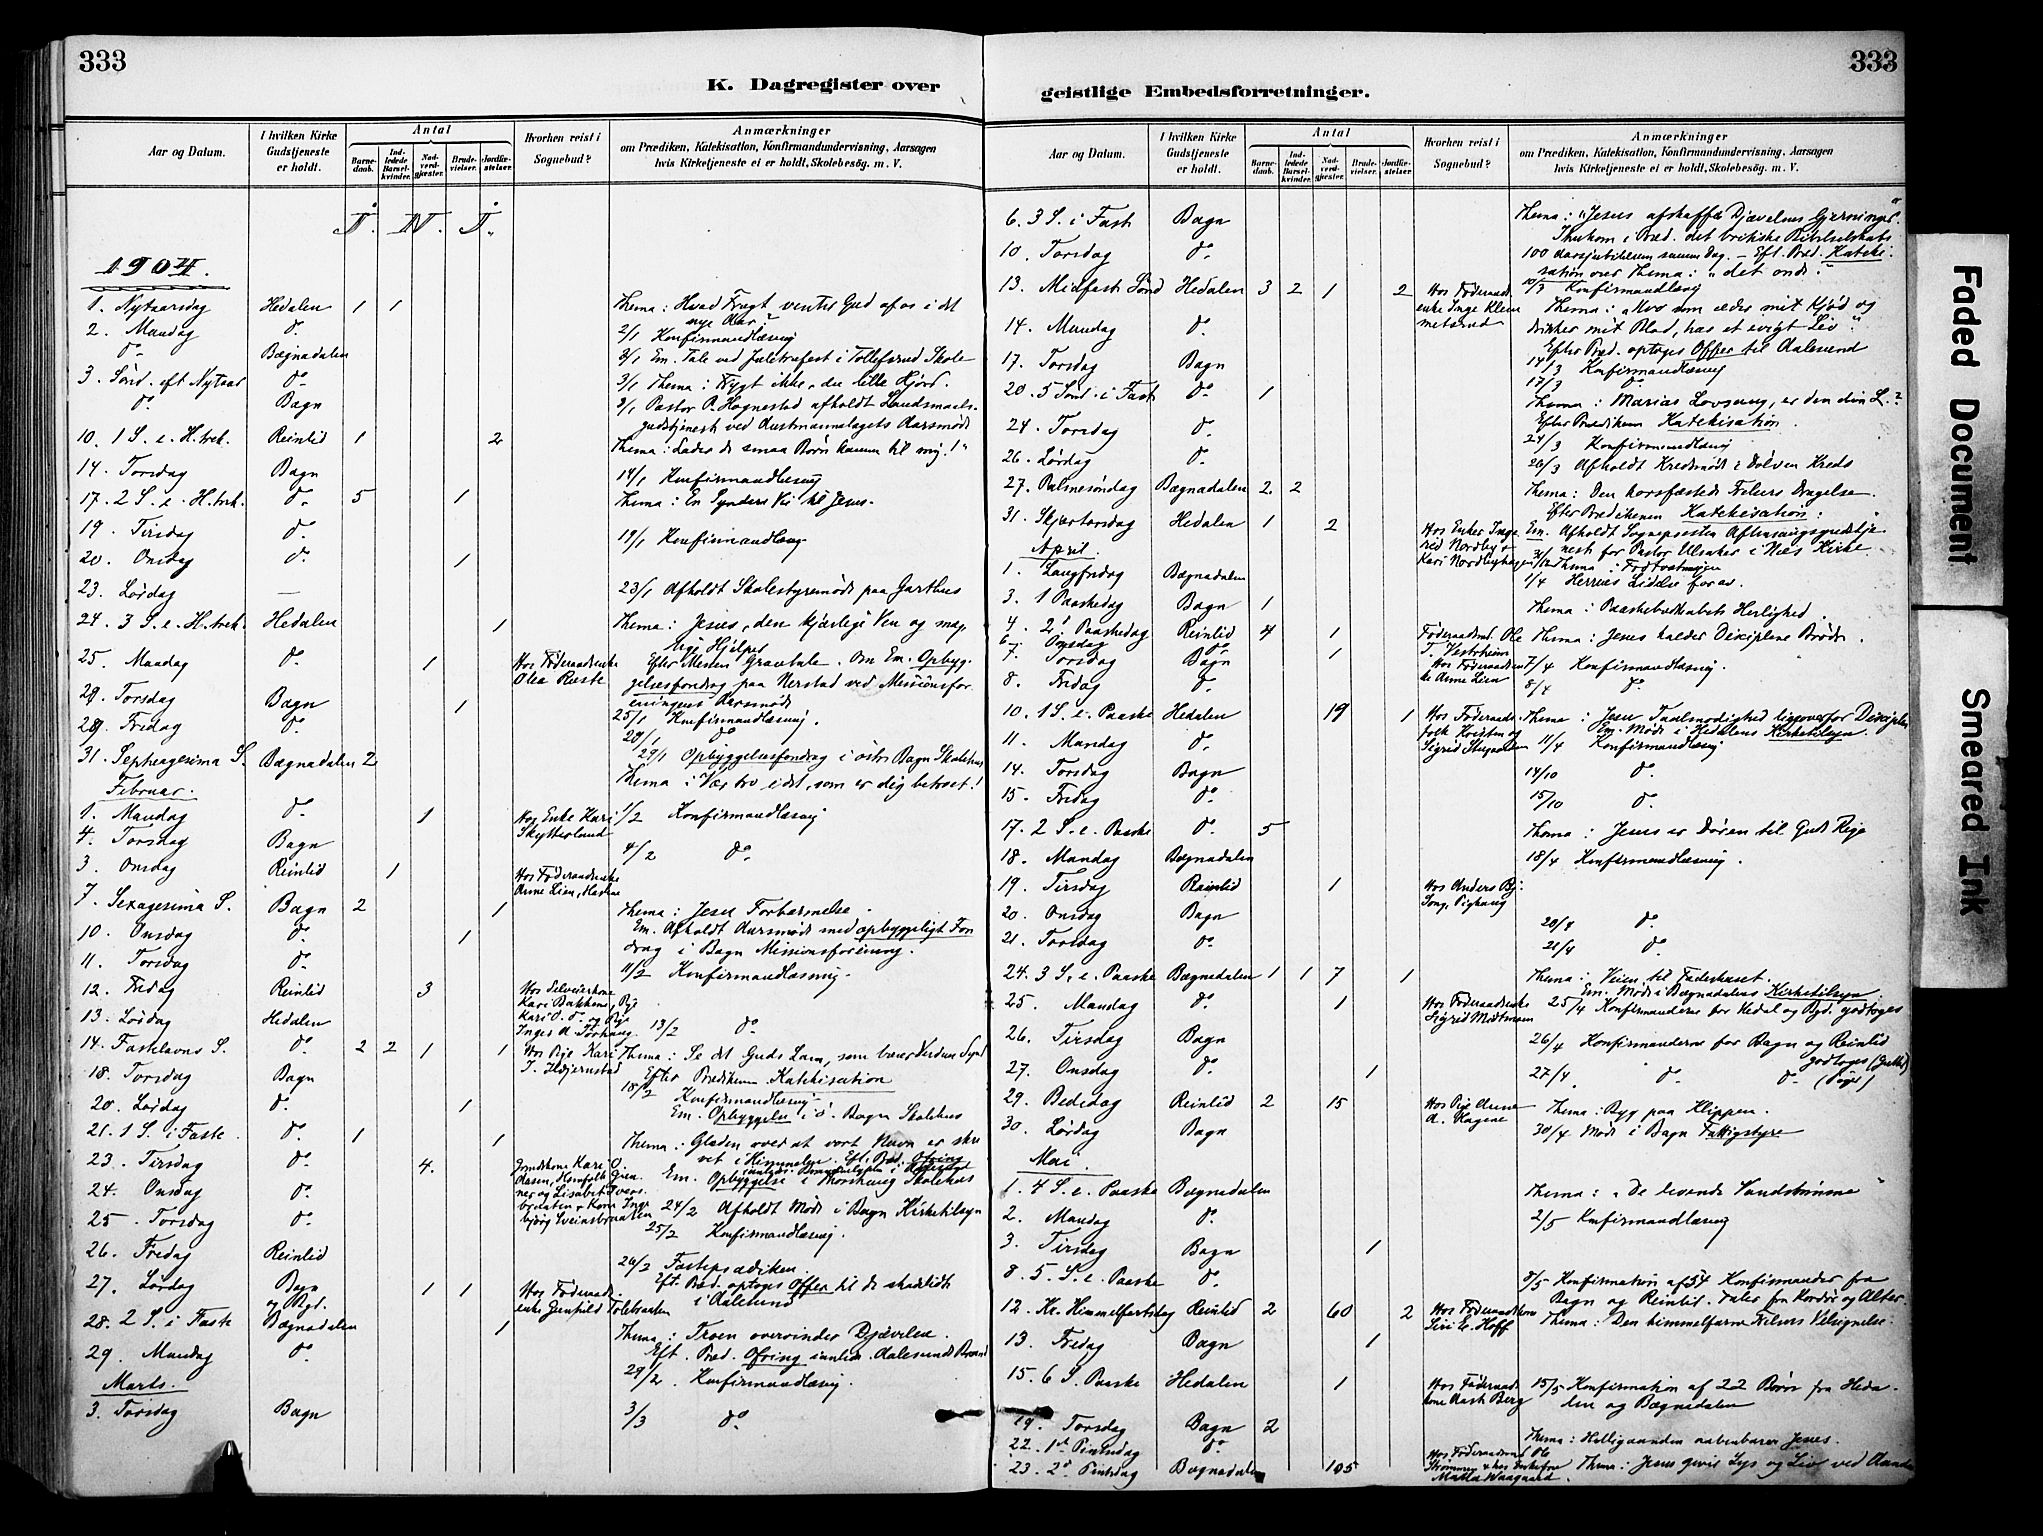 333
K. Dagregister over
Aar og Datum.
I hvilken Kirke Gudstjeneste er holdt.
Antal
Barne-daab.
Ind-ledede Barsel-kvinder.
Nad-verd-gjester.
Brude-vielser.
Jordfæ-stelser.
Hvorhen reist i Sognebud?
Anmærkninger
om Prædiken, Katekisation, Konfirmandundervisning, Aarsagen
hvis Kirketjeneste ei er holdt, Skolebesög. m. V.
1904.
1. Nytaarsdag Hedalen 1 1 Thema: Hvad Frygt venter Gud af os i det
nye Aar?
2. Mandag do. 2/1 Konfirmandlæsnig
do. Bægnadalen 3/1 Em. Tale ved Juletræfest i Tollefsrud Skole
3. Sønd. eft Nytaar do. 3/1 Thema: Frygt ikke, du lille Hjord.
do. Bagn 3/1 Pastor P. Hognestad afholdt Landsmaals-
gudstjenest ved Austmannalagets Aarsmøde
10. 1 S. e. H. trek. Reinlid 1 2 Thema: Lader de smaa Børn komme til mig!"
14. Torsdag Bagn 14/1 Konfirmandlæsnig
17. 2 S. e. H. trek. do. 5 1 Thema: En Synders Vei til Jesus.
19. Tirsdag do. 19/1 Konfirmandlæsng
20. Onsdag do. 1
23. Lördag — 23/1 Afholdt Skolestyremöde paa Garthus
24. 3 S. e. H. trek. Hedalen 1 Thema: Jesus, den kjærlige Ven og mæg
tige Hjælper
25. Mandag do. 1 Hos Föderaadsenke Efter Messen Gravtale. Om Em. Opbyg
Olea Ruste gelsesfordrag paa Nerstad ved Missionsfor
eningens Aarsmöde
28. Torsdag Bagn 1 25/1 Konfirmandlæsnig.
29. Fredag do. 28/1 do
29/1 Opbyggelsesfordrag i östre Bagn Skolehus
31. Septuagesima S. Bægnadalen 2 Thema: Vær tro i det, som er dig betroet!
Februar.
1. Mandag do. 1 Hos Enke Kari 1/2 Konfirmandlæsnig
4. Torsdag Bagn 4/2 do.
3. Onsdag Reinlid 1 Hos Föderaadsenke
Anne Lien,
7. Sexagesima S. Bagn 2 1 Thema: Jesu Forbarmelse.
10. Onsdag do. 1 Em. Afholdt Aarsmöde med opbyggeligt For
drag i Bagn Missionsforening.
11. Torsdag do. 11/2 Konfirmandlæsnig.
12. Fredag Reinlid 3 Hos Selveierkone
Kari Bakken, Pige
Kari O. T. og Pige
13. Lördag Hedalen 13/2 do.
14. Fastelavns S. do. 2 2 1 1 Hos Pige Kari Thema: Se det Guds Lam, som bærer Verdens Synd
T. Efter Prædikenen Katekisation
18. Torsdag Bagn 18/2 Konfirmandlæsnig
20. Lördag do. 1 Em. Opbyggelse i ö. Bagn Skolehus
21. 1 S. i Faste. do. 1 1 Thema: Glæden over at vort Navn er skre
vet i Himmelen. Eft. Præd. Ofring
23. Tirsdag do. 4. Grudekone Kari O.
Em. Opbyggelse i Skolehus
24. Onsdag do. 24/2 Afholdt Möde i Bagn Kirketilsyn
25. Torsdag do. 25/2 Konfirmandlæsnig.
26. Fredag Reinlid 26/2 Fasteprædiken.
27. Lördag Bagn 1 1 Hos Föderaads- Eft. Præd. optoges Offer til de skadelidte
og Bgd. enke Gunhild i Aalesund
28. 2 S. i Faste Bægnadalen 1 Thema: Troen overvinder Djævelen.
29. Mandag do. Eft. Præd. Ofring Aalesunds Brand
29/2. Konfirmandlæsnig.
Marts.
3. Torsdag Bagn 3/3 do.
333
geistlige Embedsforretninger.
Aar og Datum.
I hvilken Kirke Gudstjeneste er holdt.
Antal
Barne-daab.
Ind-ledede Barsel-kvinder.
Nad-verd-gjester.
Brude-vielser.
Jordfæ-stelser.
Hvorhen reist i Sognebud?
Anmærkninger
om Prædiken, Katekisation, Konfirmandundervisning, Aarsagen
hvis Kirketjeneste ei er holdt, Skolebesög. m. V.
6. 3 S. i Fast Bagn Thema: "Jesus afskaffer Djævelens Gjerninger."
Ihukom i Præd. det britiske Bibelselskabs
10. Torsdag do. 100 aarsjubilæum samme Dag. – Eft. Præd. Kateki-
sation over Thema: "det onde".
10/3 Konfirmandlæsnig
13. Midfaste Sönd Hedalen 3 2 1 2 Hos Föderaads
enke Inge Klem
metsrud Thema: "Hvo som æder mit Kjød og
14. Mandag do. drikker mit Blod, har et evigt Liv".
Efter Præd. optoges Offer til Aalesund
17. Torsdag Bagn 14/3 Konfirmandlæsnig
17/3 do.
20. 5 Sönd. i Fast do. 1 Thema: Marias Lovsang, er den din L.?
Efter Prædikenen Katekisation.
24. Torsdag do. 24/3 Konfirmandlæsnig
26. Lördag do. 26/3 Afholdt Kredsmöde i Dölven Kreds
27. Palmesöndag Bægnadalen 2. 2 Thema: Den korsfæstede Frelsers Dragelse.
Efter Prædikenen Katekisation.
31. Skjærtorsdag Hedalen 1 2 Hos Enker Inge Em. Afholdt Sognepresten Aftensangsgudstje
nest for Pastor Ulsaker i Næs Kirke
Kari Nordbyhagen 31/3 Thema: Fodtvætningen
April.
1. Langfredag Bægnadalen 1/4 Herres Lidelse for os.
3. 1 Paaskedag Bagn 1 Thema: Paaskebudskabets Herlighed.
4. 2. Paaskedag Reinlid 4 1 Föderaadsmd. Ole Thema: Jesus kalder Disciplene Brödre.
T. Vestrheim
6. Onsdag do. 1 Hos Föderaadsen
ke Anne Lien
7. Torsdag Bagn 7/4 Konfirmandlæsnig.
8. Fredag do. 8/4 do.
10. 1 S. e. Paaske Hedalen 19 1 Hos Föderaads- Thema: Jesu Taalmodighed ligeoverfor Disciplen
folk Em. Möde i Hedalens Kirketilsyn.
11. Mandag do. 11/4 Konfirmandlæsnig
14. Torsdag Bagn 14/10 do.
15. Fredag do. 15/10 do.
17. 2 S. e. Paaske do. 5 Thema: Jesus er Dören til Guds Rige
18. Mandag Bægnadalen 18/4 Konfirmandlæsnig.
19. Tirsdag Reinlid 1 Hos Anders Bj.
20. Onsdag Bagn 20/4 do.
21. Torsdag do. 21/4 do.
24. 3 S. e. Paaske Bægnadalen 1 1 7 1 Thema: Veien til Faderhuset.
Em. Möde i Bægnadalens Kirketilsyn
25. Mandag do. 1 Hos Föderaadsenke 25/4 Konfirmanderne for Hedal og Bgd. godtoges
Sigrid
26. Tirsdag Bagn 26/4 Konfirmanderne for Bagn og Reinlid
godtoges (Gutter)
27. Onsdag do. 1 27/4. do. do. (Piger)
29. Bededag Reinlid 2 15 Hos Pige Anne Thema: Byg paa Klippen.
A. Hagene
30. Lördag Bagn 30/4 Möde i Bagn Fattigstyre
Mai.
1. 4 S. e. Paaske Bægnadalen Thema: "De levende Vandströmme"
2. Mandag do. 2/5 Konfirmandlæsnig
3. Tirsdag Bagn 1
8. 5. S. e. Paaske do. 8/5 Konfirmation af 54 Konfirmander fra
Bagn og Reinlid. Taler fra Kordör og Alter.
12. Kr. Himmelfartsdag Reinlid 2 60 2 Hos Föderaadskone
Siri E. Hoff Thema: Den himmelfarne Frelsers Velsignelse.
13. Fredag Bagn 1
15. 6 S. Paaske Hedalen 1 Hos Föderaads
kone Berg 15/5 Konfirmation af 22 Börn fra Heda-
len og Bægnadalen
19. Torsdag Bagn 2
22. 1ste Pintsedag do. Thema: Helligaanden aabenbarer Jesus.
23. 2d Pintsdag Bægnadalen 105 Hos Föderaadsmd Ole
Thema: Jesus giver Lys og Liv ved Aanden
Faded Document
Smeared Ink